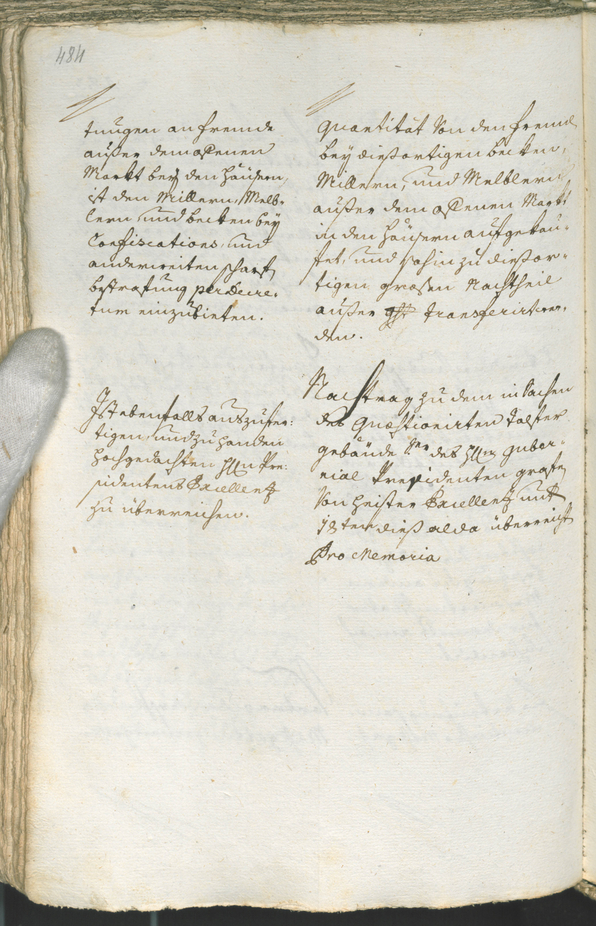 484
tungen an fremde
ausser dem offenen
Markt bey den Häusern,
ist den Millern, Melb-
lern, und becken bey
Confiscations, und
anderweiten scharfen
bestrafung per decre-
tum einzubieten.
Ist ebenfalls auszufer-
tigen, und zu handen
hochgedachten Hln Pre-
sidentens Excellenz
zu überreichen.
quantität von den fremden
bey diesortigen becken,
Millern, und Melblern
ausser dem offenen Markt
in den Häusern aufgekau-
fet, und sohin zu diesor-
tigen grosen Nachtheil
ausser transferirt wer-
den.
Nachtrag zu dem in Sachen
des questionirten Talfer
gebäude des Hln guber-
nial Presidenten grafen
von Heister Excellenz mit
18ten dies alda überreicht
Pro Memoria